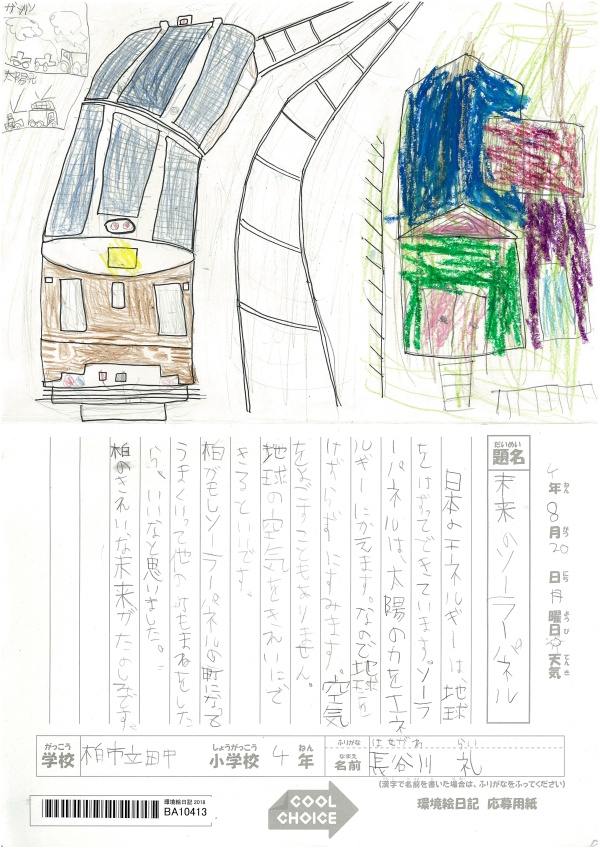 ガソリン
太陽光
4年 8月 20日 月曜日 天気
ねん がつ にち ようび てんき
だいめい
題名 未来のソーラーパネル
日本のエネルギーは、地球
をけずってできています。ソーラ
ーパネルは、太陽の力をエネ
ルギーにかえます。なので地球を
けずらずにすみます。空気
をよごすこともありません。
地球の空気をきれいにで
きるといいです。
柏がもしソーラーパネルの町になって
うまくいって他の町もまねをした
ら、いいなと思いました。
柏のきれいな未来がたのしみです。
がっこう しょうがっこう ねん ふりがな はせがわ らい
学校 柏市立田中 小学校 4年 なまえ 名前 長谷川 礼
(漢字で名前を書いた場合は、ふりがなをふってください)
環境絵日記 2018
BA10413
COOL CHOICE
環境絵日記 応募用紙